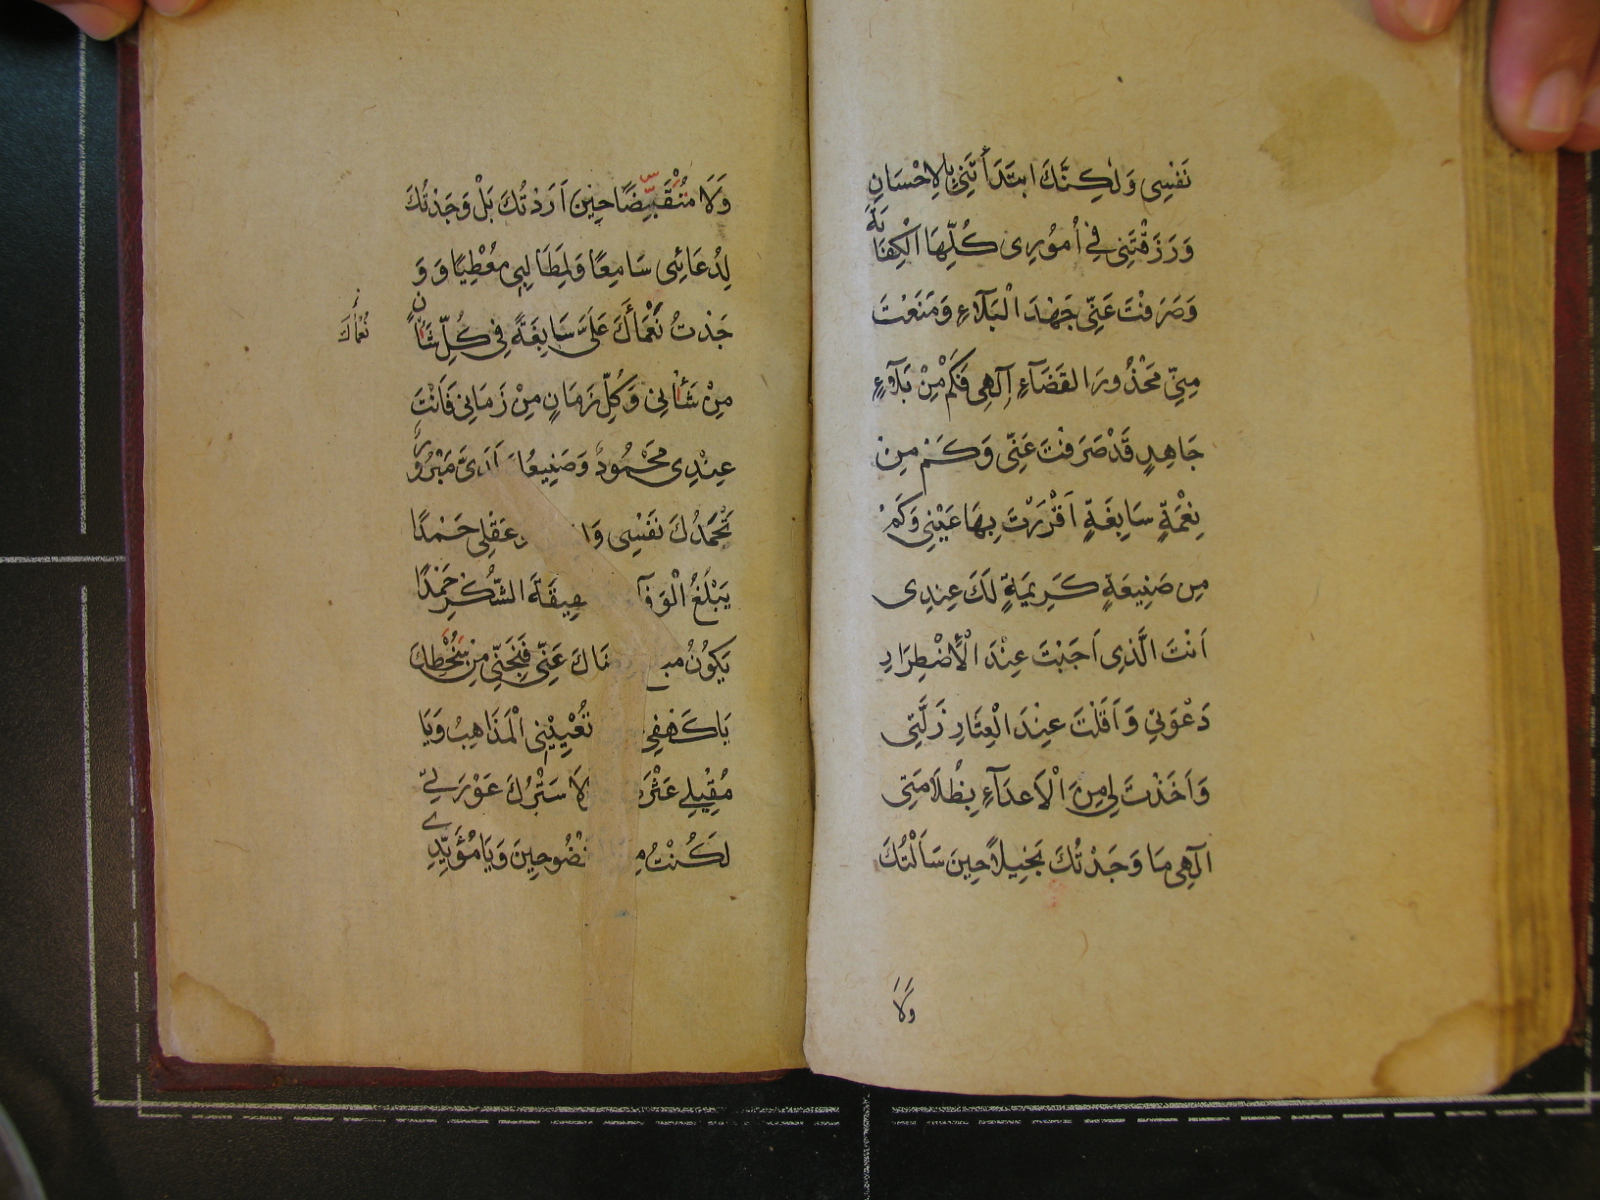 نَفْسِى وَلٰكِنَّكَ ابْتَدَأْتَنِى بِالاِحْسَانِ
وَرَزَقْتَنِى فِى اُمُورِى كُلِّهَا الْكِفَايَةَ
وَصَرَفْتَ عَنِّى جَهْدَ الْبَلَآءِ وَمَنَعْتَ
مِنِّى مَحْذُورَ القَضَآءِ اِلٰهِى فَكَمْ مِنْ بَلَآءٍ
جَاهِدٍ قَدْ صَرَفْتَ عَنِّى وَكَمْ مِنْ
نِعْمَةٍ سَابِغَةٍ اَقْرَرْتَ بِهَا عَيْنِى وَكَمْ
مِن صَنِيعَةٍ كَرِيمَةٍ لَكَ عِندِى
اَنْتَ الَّذِى اَجَبْتَ عِنْدَ الْأِضْطِرَارِ
دَعْوَتِى وَاَقَلْتَ عِنْدَ الْعِثَارِ زَلَّتِى
وَاَخَذْتَ لِى مِنَ الْاَعدَآءِ بِظُلَامَتِى
اِلٰهِى مَا وَجَدْتُكَ بَخِيلاً حِينَ سَاَلْتُكَ
وَلَا
وَلَا مُنْقَبِضًا حِينَ اَرَدْتُكَ بَلْ وَجَدْتُكَ
لِدُعَائِى سَامِعًا وَلِمَطَالِبِى مُعْطِيًا وَ وَ
جَدْتُ نُعْمَأكَ عَلَىَّ سَابِغَةً فِى كُلِّ شَانٍ
نُعْمَأكَ
مِنْ شَأنِى وَكُلِّ زَمَانٍ مِنْ زَمَانِى فَاَنْتَ
عِنْدِى مَحْمُودٌ وَصَنِيعُ لَدَىَّ مَبْرُورٌ
تَحْمَدُكَ نَفْسِى وَ عَقْلِى حَمْدًا
يَبْلَغُ الْوَفَآ حَقِيقَةَ الشُّكْرِ حَمْدًا
يَكُونُ عَنِّى فَنَجِّنِى مِنْ سَخَطِكَ
يَا كَهْفِى تُعْيِيْنِى الْمَذَاهِبُ وَيَا
مُقِيْلِى عَثْرَتِى لَا سَتْرُكَ عَوْرَتِى
لَكُنْتُ وَيَا مُؤَيِّدِى